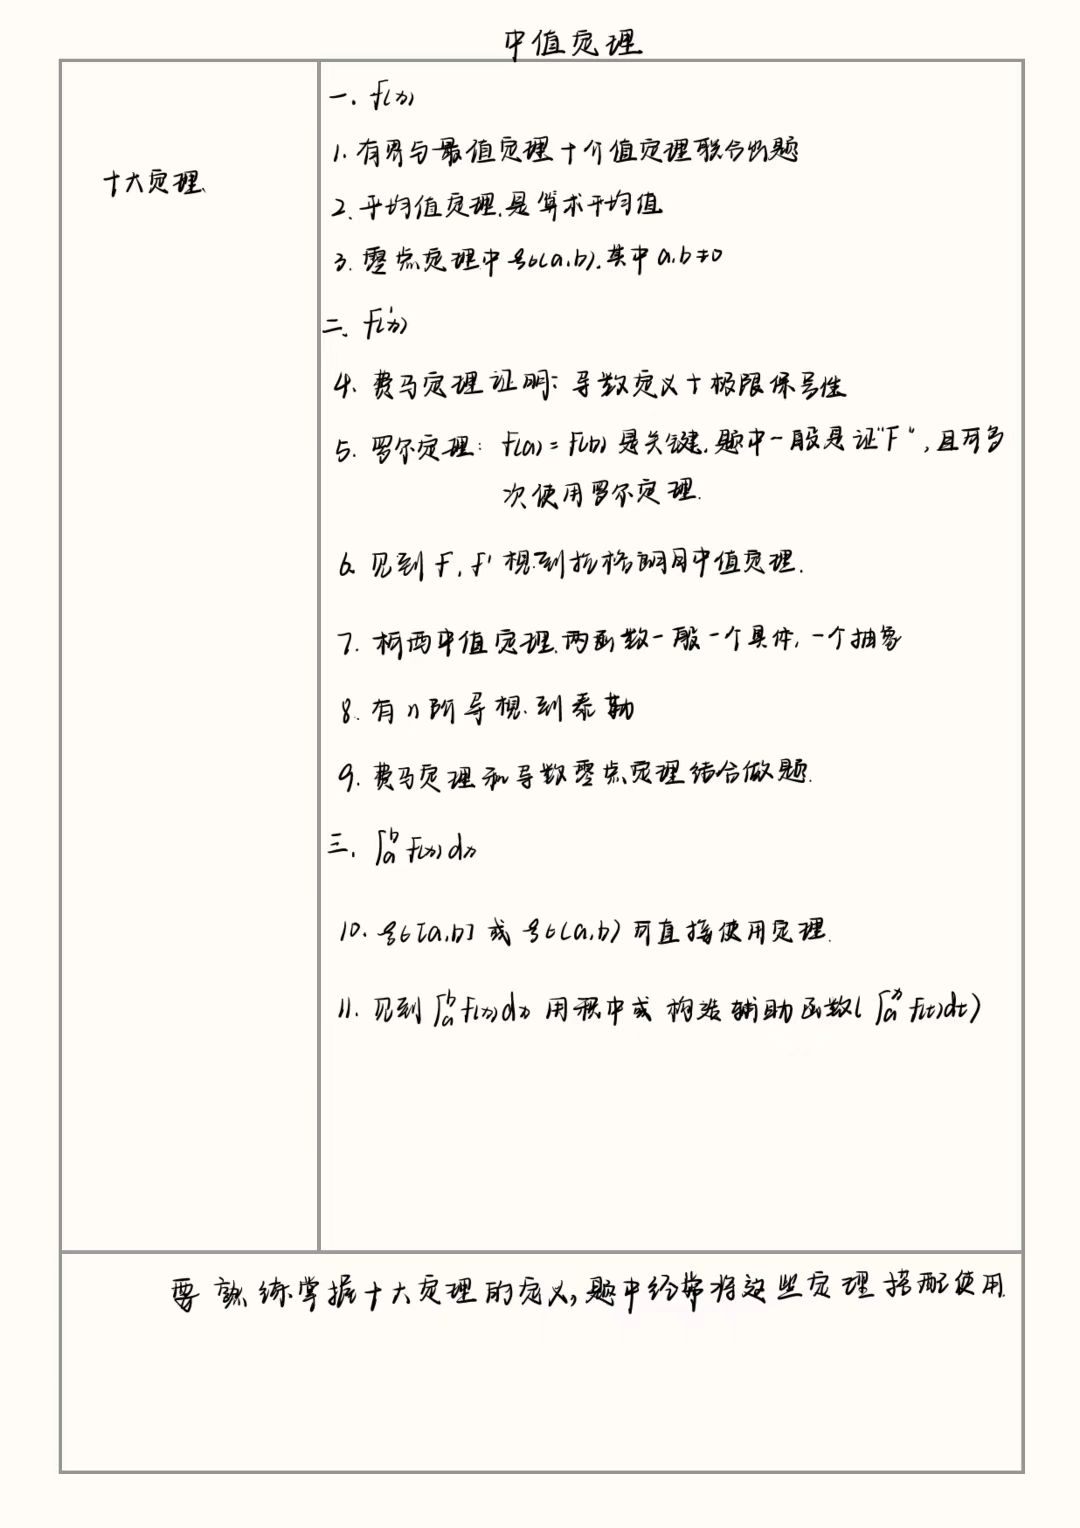 中值定理
十大定理
一. f(x)
1. 有界与最值定理+介值定理联合出题
2. 平均值定理是算术平均值
3. 零点定理中ξ∈(a,b),其中a,b≠0
二. f'(x)
4. 费马定理证明:导数定义+极限保号性
5. 罗尔定理: f(a)=f(b)是关键,题中一般是证"F",且可多
次使用罗尔定理.
6. 见到f, f'想到拉格朗日中值定理.
7. 柯西中值定理,两函数一般一个具体,一个抽象
8. 有n阶导想到泰勒
9. 费马定理和导数零点定理结合做题.
三. ∫ₐᵇ f(x)dx
10. ξ∈[a,b]或ξ∈(a,b)可直接使用定理.
11. 见到∫ₐᵇ f(x)dx 用积中或构造辅助函数(∫ₐˣ f(t)dt)
要熟练掌握十大定理的定义,题中经常将这些定理搭配使用.